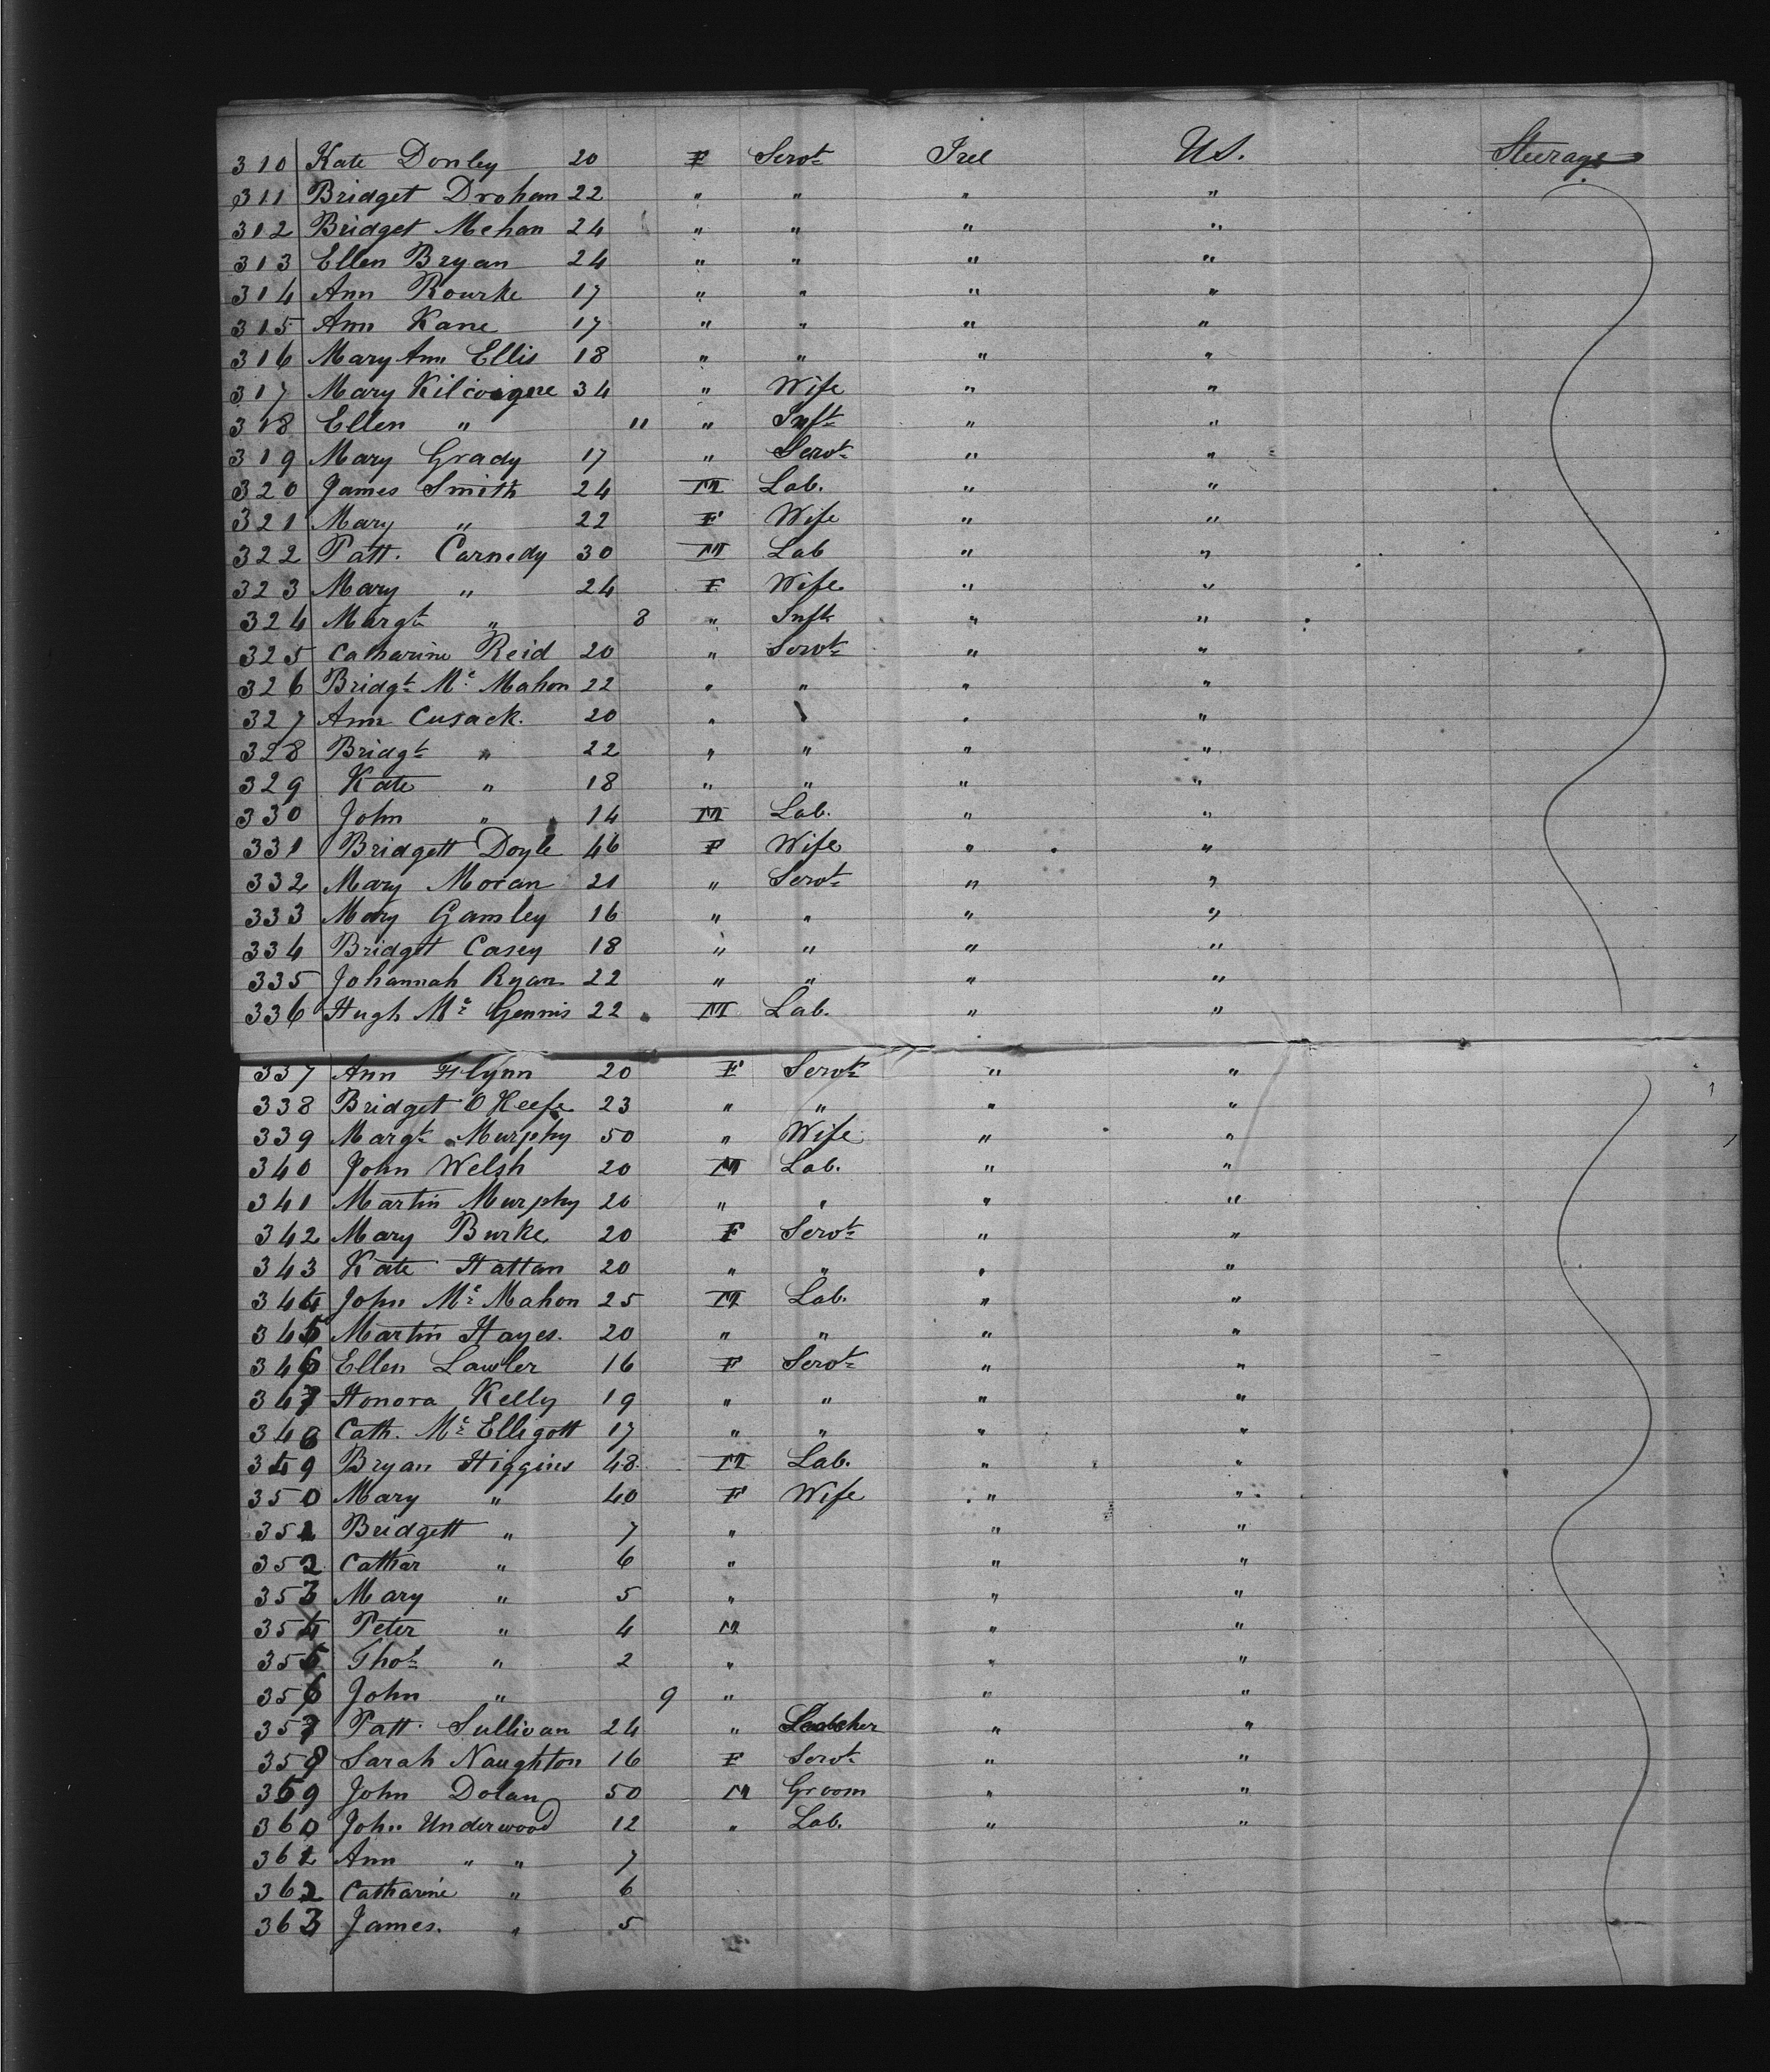 310 Kate Donley 20 F Servt Irel U.S. Steerage
311 Bridget Drohan 22 " " " "
312 Bridget Mehan 24 " " " "
313 Ellen Bryan 24 " " " "
314 Ann Rourke 17 " " " "
315 Ann Kane 17 " " " "
316 Mary Ann Ellis 18 " " " "
317 Mary 34 " Wife " "
318 Ellen " 11 " Inft " "
319 Mary Grady 17 " Servt " "
320 James Smith 24 M Lab. " "
321 Mary " 22 F Wife " "
322 Patt. Carnedy 30 M Lab " "
323 Mary " 24 F Wife " "
324 Margt " 8 " Inft " "
325 Catharine Reid 20 " Servt " "
326 Bridgt Mc Mahon 22 " " " "
327 Ann Cusack. 20 " " " "
328 Bridgt " 22 " " " "
329 Kate " 18 " " " "
330 John " 14 M Lab. " "
331 Bridgett Doyle 46 F Wife " "
332 Mary Moran 21 " Servt " "
333 Mary Gamley 16 " " " "
334 Bridget Casey 18 " " " "
335 Johannah Ryan 22 " " " "
336 Hugh Mc Gennis 22 M Lab. " "
337 Ann Flynn 20 F Servt " "
338 Bridget O Keefe 23 " " " "
339 Margt Murphy 50 " Wife " "
340 John Welsh 20 M Lab. " "
341 Martin Murphy 20 " " " "
342 Mary Burke 20 F Servt " "
343 Kate Hattan 20 " " " "
344 John Mc Mahon 25 M Lab. " "
345 Martin Hayes. 20 " " " "
346 Ellen Lawler 16 F Servt " "
347 Honora Kelly 19 " " " "
348 Cath. Mc Elligott 17 " " " "
349 Bryan Higgins 48 M Lab. " "
350 Mary " 40 F Wife " "
351 Bridgett " 7 " " "
352 Cathar " 6 " " "
353 Mary " 5 " " "
354 Peter " 4 M " "
355 Thos " 2 " " "
356 John " 9 " " "
357 Patt. Sullivan 24 " " "
358 Sarah Naughton 16 F Servt " "
359 John Dolan 50 M Groom " "
360 John Underwood 12 " Lab. " "
361 Ann " " 7
362 Catharine " 6
363 James. " 5